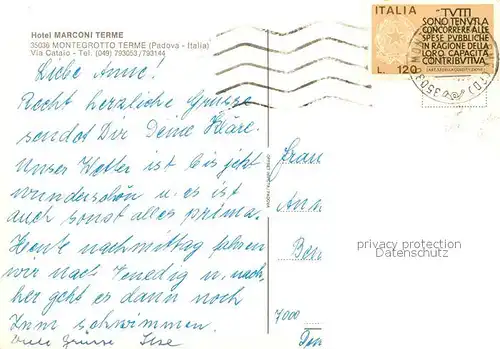 Hotel MARCONI TERME
35036 MONTEGROTTO TERME (Padova - Italia)
Via Cataio - Tel. (049) 793053/793144
Liebe Anne!
Recht herzliche Grüsse
sendet Dir Deine Kläre.
Unser Wetter ist bis jetzt
wunderschön u. es ist
auch sonst alles prima.
Heute nachmittag fahren
wir nach Venedig u. nach-
her geht es dann noch
zum schwimmen.
Viele Grüsse Ilse
ITALIA
TUTTI
SONO TENUTI A
CONCORRERE ALLE
SPESE PUBBLICHE
IN RAGIONE DELLA
LORO CAPACITÀ
CONTRIBUTIVA
L. 120
3503
Frau
An
Ben
7000
privacy protection
Datenschutz